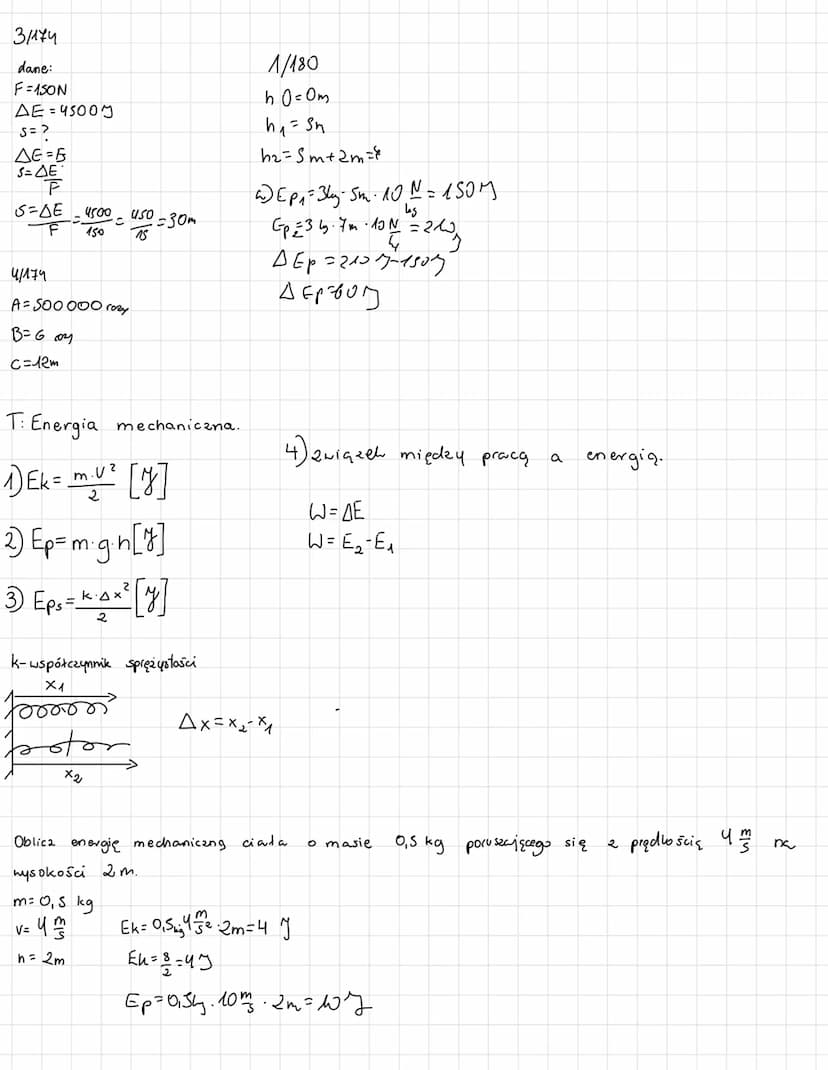 3/174
dane:
F=150N
ΔE=4500J
s=?
ΔE=F
s=ΔE/F
s=ΔE/F=4500/150=450/15=30m
4/174
A=500000 razy
B=6
C=12m
1/180
h0=0m
h₁=5m
h₂=5m+2m=7
a) Ep₁=3kg·5m·10 N/kg=150J
Ep₂=3kg·7m·10 N/kg=210J
ΔEp=210J-150J
ΔEp=60J
T: Energia mechaniczna.
1) Ek=m·V²/2 [J]
2) Ep=m·g·h[J]
3) Eps=k·Δx²/2 [J]
4) związek między pracą a energią.
W=ΔE
W=E₂-E₁
k-współczynnik sprężystości
x₁
Δx=x₂-x₁
x₂
Oblicz energię mechaniczną ciała o masie 0,5 kg poruszającego się z prędkością 4 m/s na
wysokości 2m.
m=0,5 kg
v=4 m/s
h=2m
Ek=0,5kg·4 m/s²·2m=4 J
Ek=8/2=4J
Ep=0,5kg·10 m/s·2m=10J